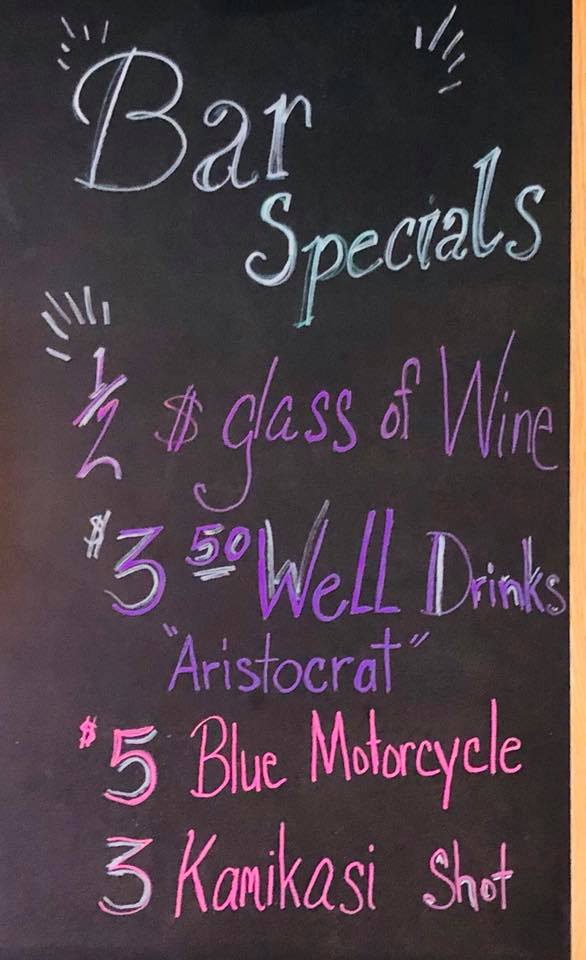 Bar
Specials
1/2 $ glass of Wine
$3.50 Well Drinks
"Aristocrat"
$5 Blue Motorcycle
3 Kamikasi Shot